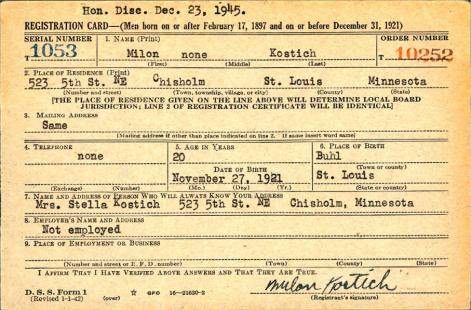 Hon. Disc. Dec. 23, 1945.
REGISTRATION CARD—(Men born on or after February 17, 1897 and on or before December 31, 1921)
SERIAL NUMBER 1. NAME (Print) ORDER NUMBER
T 1053 Milon none Kostich T 10252
(First) (Middle) (Last)
2. PLACE OF RESIDENCE (Print)
523 5th St. NE Chisholm St. Louis Minnesota
(Number and street) (Town, township, village, or city) (County) (State)
[THE PLACE OF RESIDENCE GIVEN ON THE LINE ABOVE WILL DETERMINE LOCAL BOARD
JURISDICTION; LINE 2 OF REGISTRATION CERTIFICATE WILL BE IDENTICAL]
3. MAILING ADDRESS
Same
[Mailing address if other than place indicated on line 2. If same insert word same]
4. TELEPHONE 5. AGE IN YEARS 6. PLACE OF BIRTH
none 20 Buhl
DATE OF BIRTH (Town or county)
November 27, 1921 St. Louis
(Exchange) (Number) (Mo.) (Day) (Yr.) (State or country)
7. NAME AND ADDRESS OF PERSON WHO WILL ALWAYS KNOW YOUR ADDRESS
Mrs. Stella Kostich 523 5th St. NE Chisholm, Minnesota
8. EMPLOYER'S NAME AND ADDRESS
Not employed
9. PLACE OF EMPLOYMENT OR BUSINESS
(Number and street or R. F. D. number) (Town) (County) (State)
I AFFIRM THAT I HAVE VERIFIED ABOVE ANSWERS AND THAT THEY ARE TRUE.
D. S. S. Form 1
(Revised 1-1-42) (over) ☆ GPO 16—21630-2 Milan Kostich
(Registrant's signature)